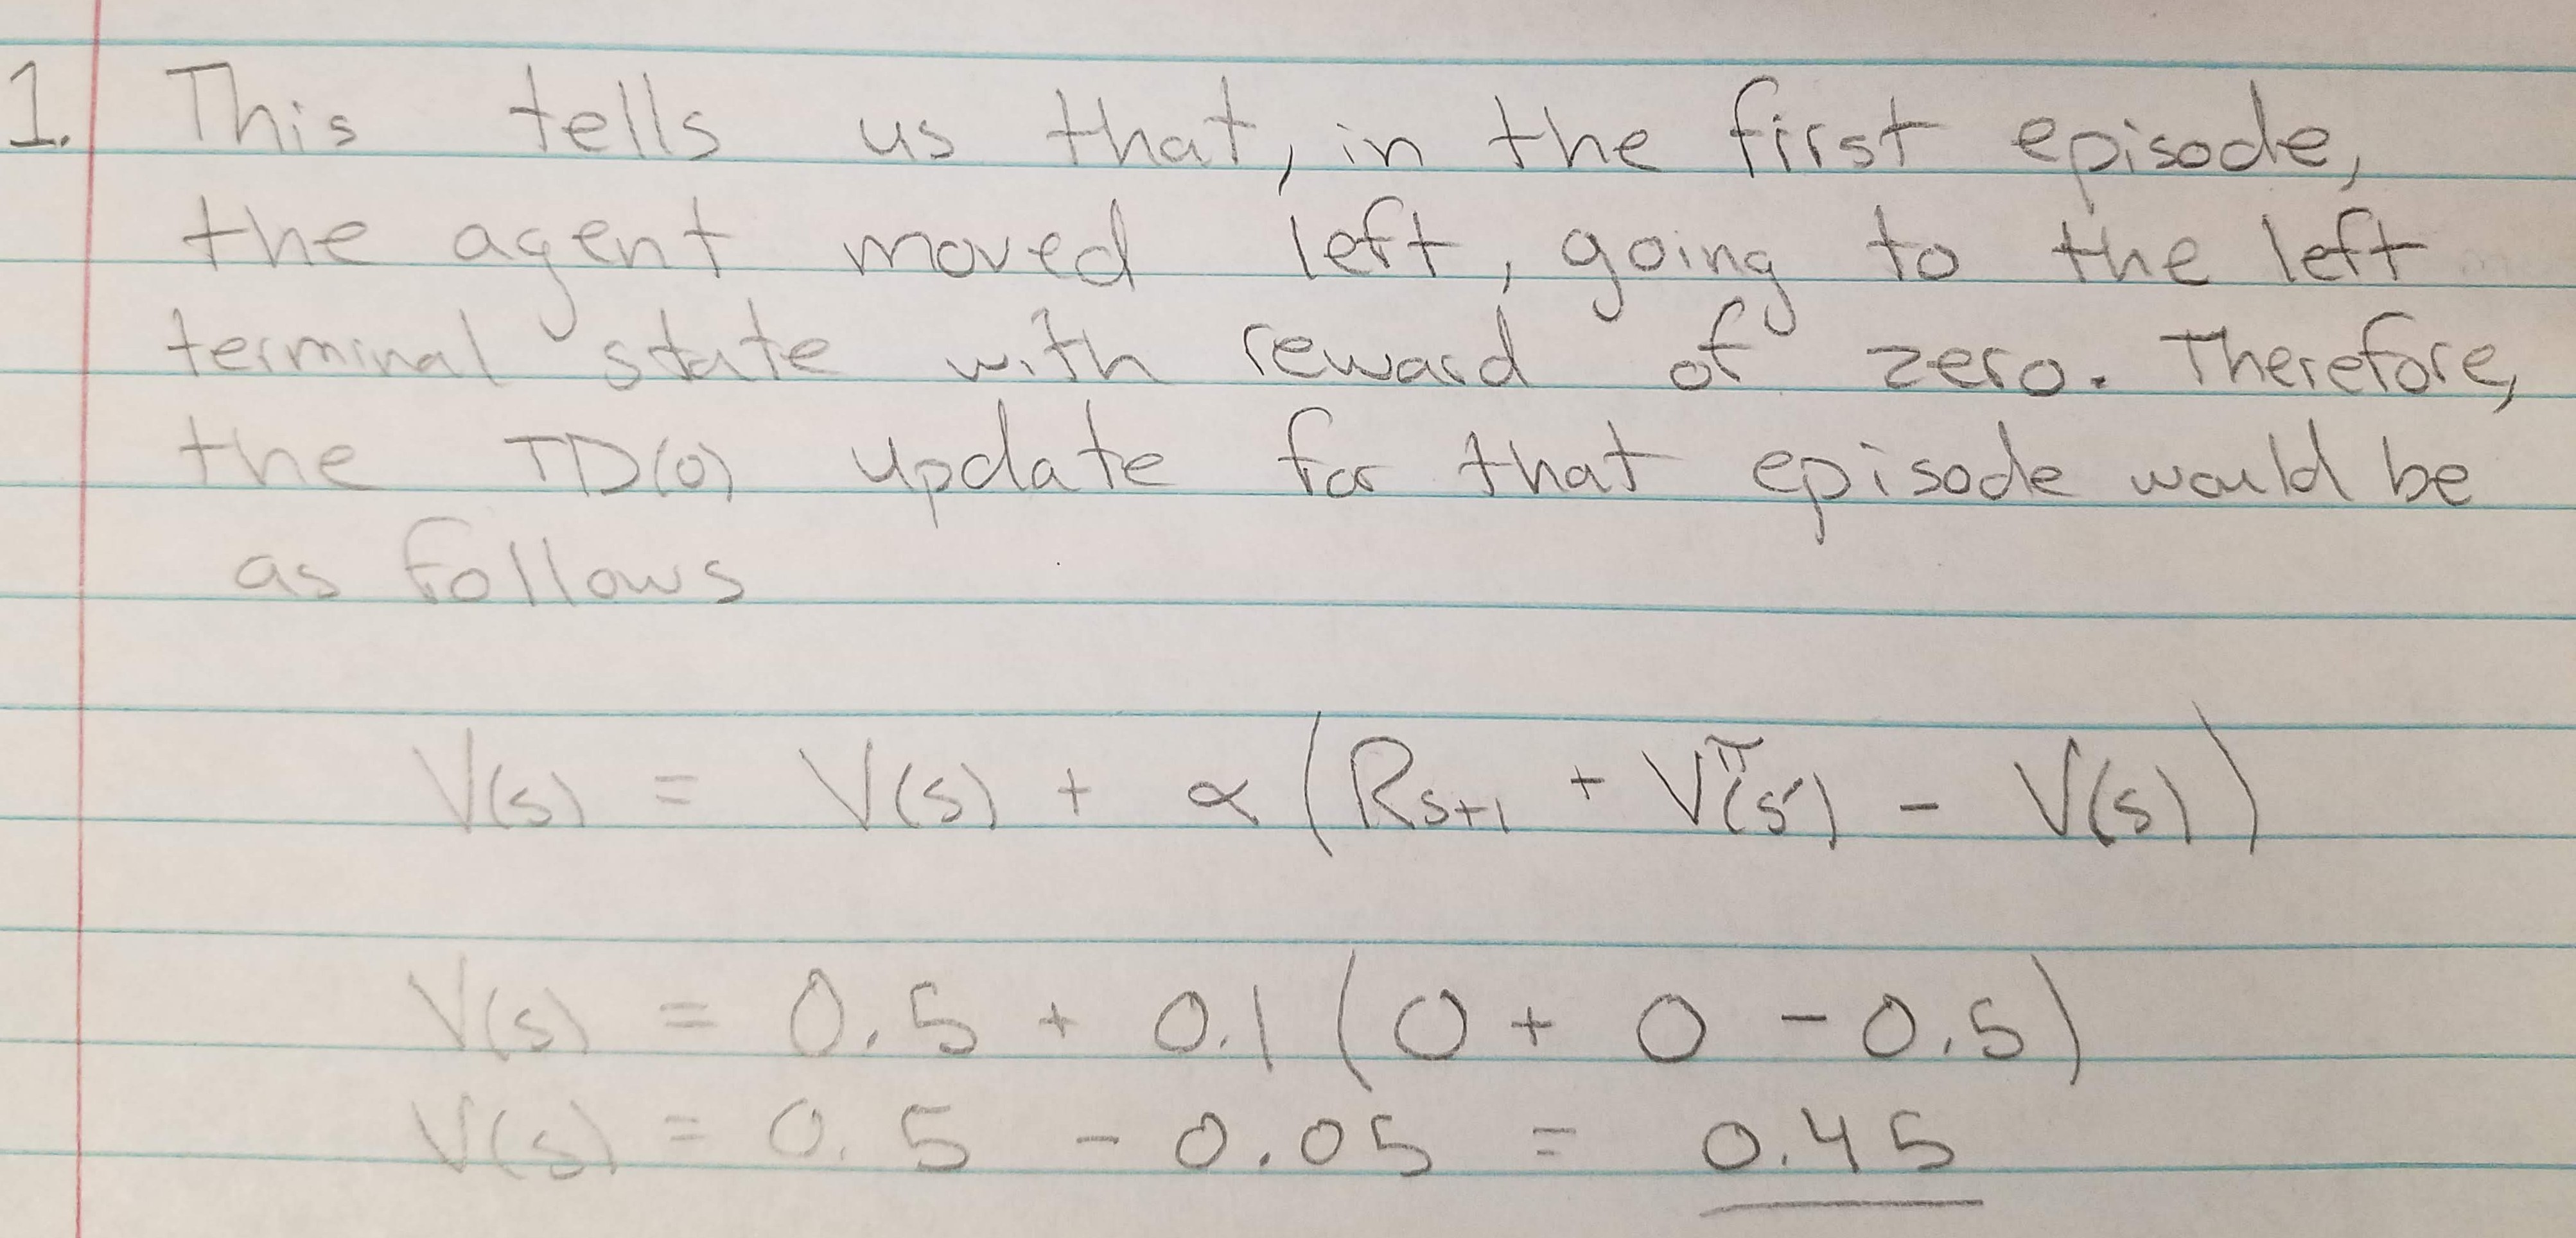 1. This tells us that, in the first episode,
the agent moved left, going to the left
terminal state with reward of zero. Therefore,
the TD(0) update for that episode would be
as follows
V(s) = V(s) + α(Rs+1 + Vπ(s') - V(s))
V(s) = 0.5 + 0.1(0 + 0 - 0.5)
V(s) = 0.5 - 0.05 = 0.45